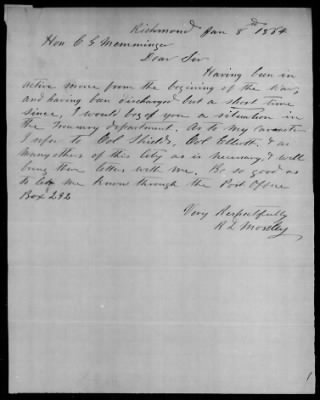 Richmond Jan 8th 1864
Hon C G Memminger
Dear Sir
Having been in
active servce from the begining of the war,
and having been discharged but a short time
since, I would beg of you a situation in
the Treasury department. As to my caracter
I refer to Col Shields, Col Elliott, & as
many others of this City as is necessary, & will
bring their letters with me. Be so good as
to let me know through the Post Office
Box 292
Very Respectfully
R L Moseley